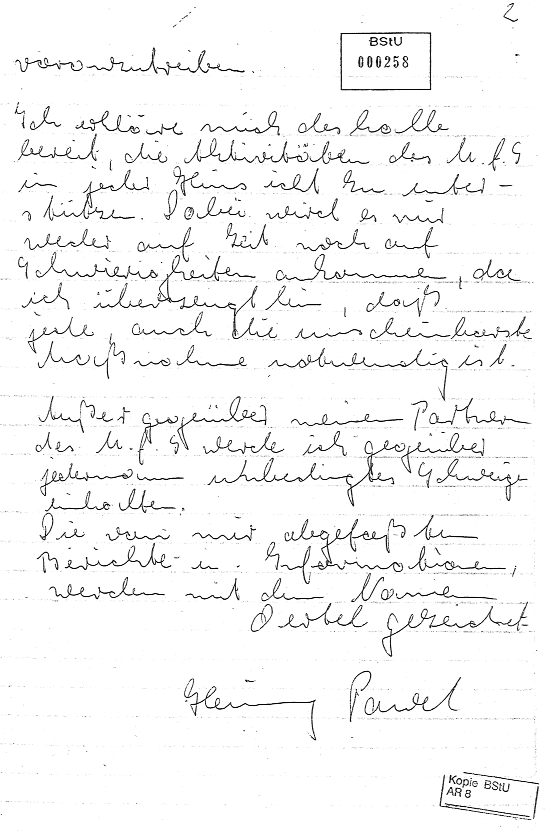 2
BStU
000258
voranzutreiben.
Ich erkläre mich deshalb
bereit, die Aktivitäten des M.f.S
in jeder Hinsicht zu unter-
stützen. Dabei wird es mir
weder auf Zeit noch auf
Schwierigkeiten ankommen, da
ich überzeugt bin, daß
jede, auch die unscheinbarste
Maßnahme notwendig ist.
Außer gegenüber meinen Partnern
des M.f.S werde ich gegenüber
jedermann unbedingtes Schweigen
einhalten.
Die von mir abgefaßten
Berichte u. Informationen,
werden mit dem Namen
Oertel gezeichnet.
Pawel
Kopie BStU
AR 8